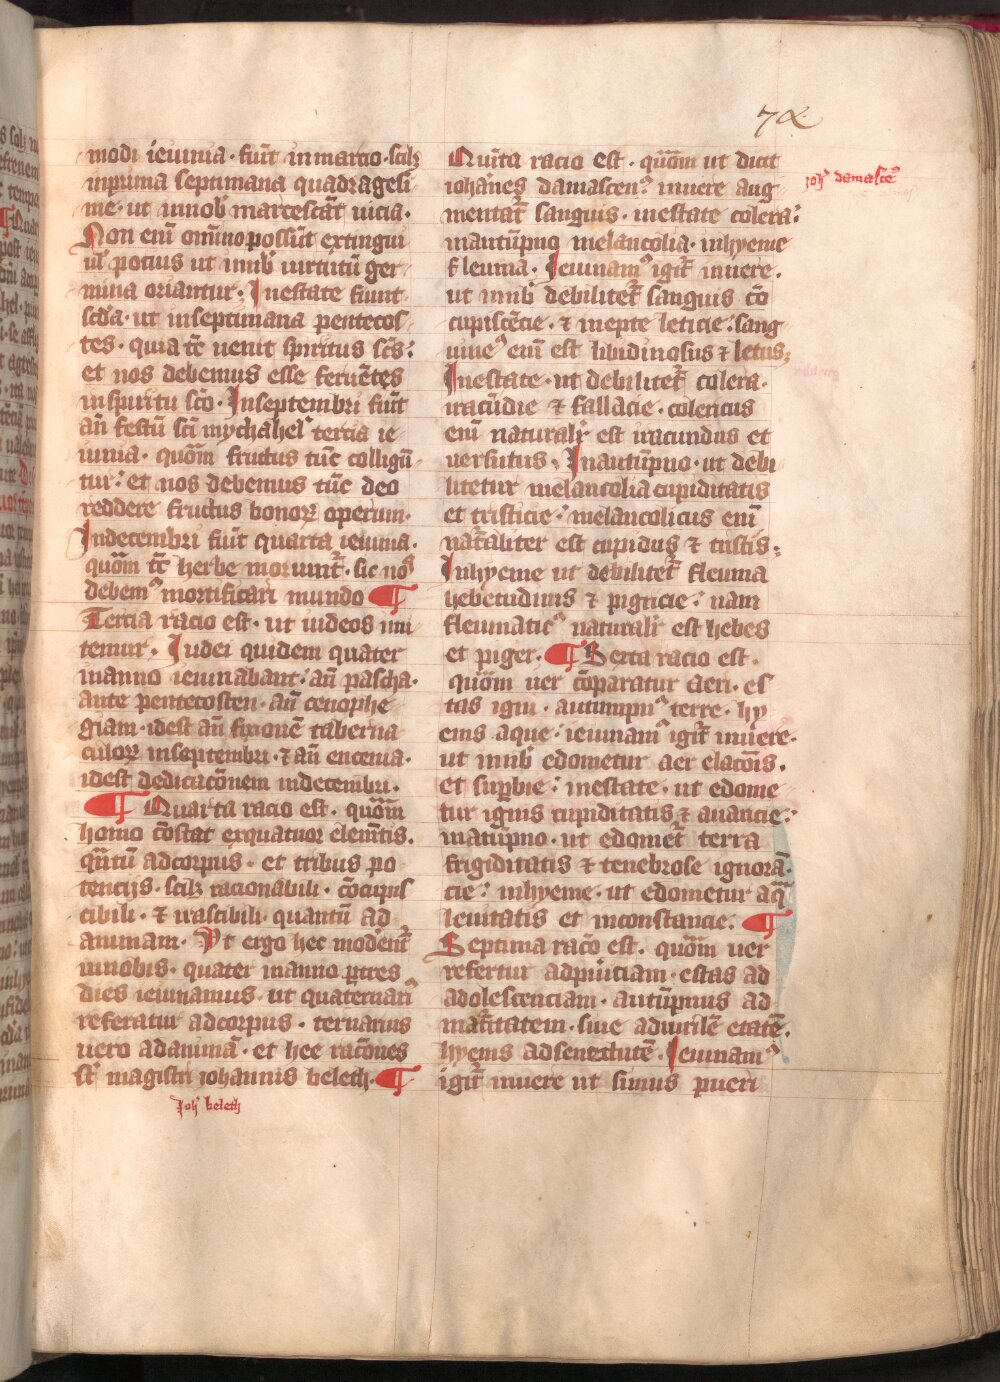 74
modi ieiunia · fiũt in marcio · scilꝫ
in prima septimana quadragesi
me · ut in nob̾ marcescãt uicia ·
Non eni᷒ om̃ino possũt extingui
ul̾ pocius ut in nob̾ uirtutũ ger
mina oriantur · In estate fiunt
scd̾a · ut in septimana pentecos
tes · quia tc̃ uenit spiritus scũs :
et nos debemus esse feruẽtes
in spiritu scõ · In septembri fiũt
añ festũ sci̾ mychahel̾ tercia ie
iunia · quõm fructus tũc colligũ
tur : et nos debemus tũc deo
reddere fructus bonoꝝ operum ·
In decembri fiũt quarta ieiunia ·
quõm tc̃ herbe moriunt̾ · sic nos
debemꝰ mortificari mundo ¶
Tercia racio est · ut iudeos imi
temur · Iudei quidem quater
in anno ieiunabant · añ pascha ·
ante pentecosten · añ cenophe
giam · idest añ fixionẽ taberna
culoꝝ in septembri · ⁊ añ encenia ·
idest dedicacõnem in decembri ·
¶ Quarta racio est · quõm
homo cõstat ex quatuor elemẽtis ·
quãtũ ad corpus · et tribus po
tencijs · scilꝫ racionabili · cõcupis
cibili · ⁊ irascibili · quantũ ad
animam · Vt ergo hec moderent̾
in nobis · quater in anno ꝑ tres
dies ieiunamus · ut quaternari᷒
referatur ad corpus · ternarius
uero ad animã · et hee racõnes
st̃ magistri iohannis beleth · ¶
Joh̾ beleth
Quinta racio est · quõm ut dicit
iohañes damascenꝰ in uere aug
mentat̾ sanguis · in estate colera :
in autũpno melancolia · in hyeme
fleuma · Ieiunamꝰ igit̾ in uere ·
ut in nob̾ debilitet̾ sanguis cõ
cupiscẽcie · ⁊ inepte leticie : sang
uineꝰ eni᷒ est libidinosus ⁊ letus ;
In estate · ut debilitet̾ colera ·
iracũdie ⁊ fallacie · colericus
eni᷒ naturalit̾ est iracundus et
uersutus · In autũpno · ut debi
litetur melancolia cupiditatis
et tristicie : melancolicus eni᷒
nat̾aliter est cupidus ⁊ tristis ;
In hyeme ut debilitet̾ fleuma
hebetudinis ⁊ pigricie : nam
fleumaticꝰ naturalit̾ est hebes
et piger · ¶ Sexta racio est ·
quõm uer cõparatur aeri · es
tas igni · autumpnꝰ terre · hy
ems aque : ieiunamꝰ igit̾ in uere ·
ut in nob̾ edometur aer elacõis ·
et suꝑbie : in estate · ut edome
tur ignis cupiditatis ⁊ auaricie :
in atũpno · ut edomet̾ terra
frigiditatis ⁊ tenebrose ignorã
cie : in hyeme · ut edometur aqua
leuitatis et inconstancie · ¶
Septima racõ est · quõm uer
refertur ad puiciam · estas ad
adolescenciam · autũpnus ad
mat̾itatem · siue ad uirilẽ etatẽ ·
hyems ad senectutẽ · Ieiunamꝰ
igit̾ in uere ut simus pueri
joh̾ damascẽꝰ